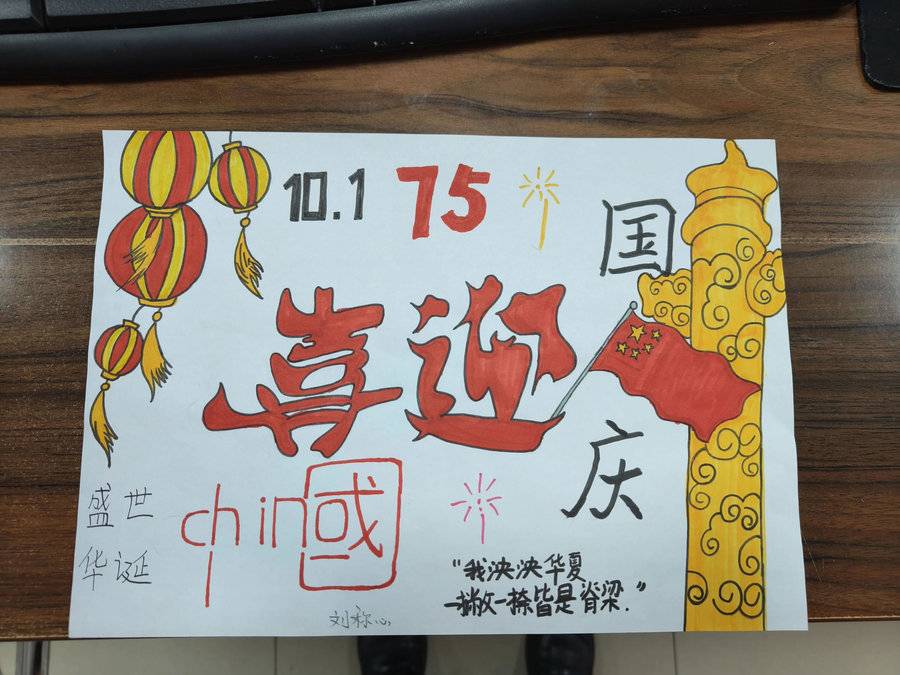 10.1 75
喜迎
国
庆
盛世
华诞
chin國
"我泱泱华夏
一撇一捺皆是脊梁."
刘称心